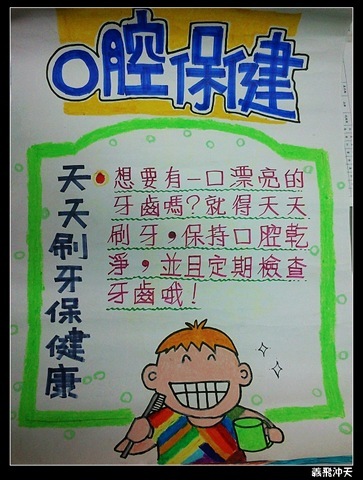 口腔保健
天天刷牙保健康
想要有一口漂亮的
牙齒嗎?就得天天
刷牙,保持口腔乾
淨,並且定期檢查
牙齒哦!
義飛沖天